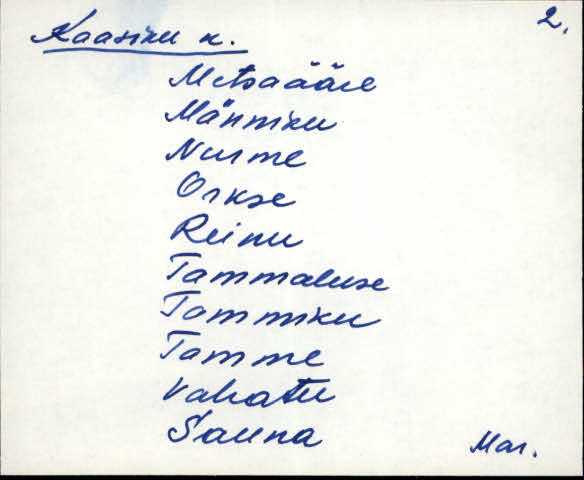 Kaasiku k. 2.
Metsaääre
Männiku
Nurme
Orkse
Reinu
Tammaluse
Tammiku
Tamme
Vahatu
Sauna
Mar.